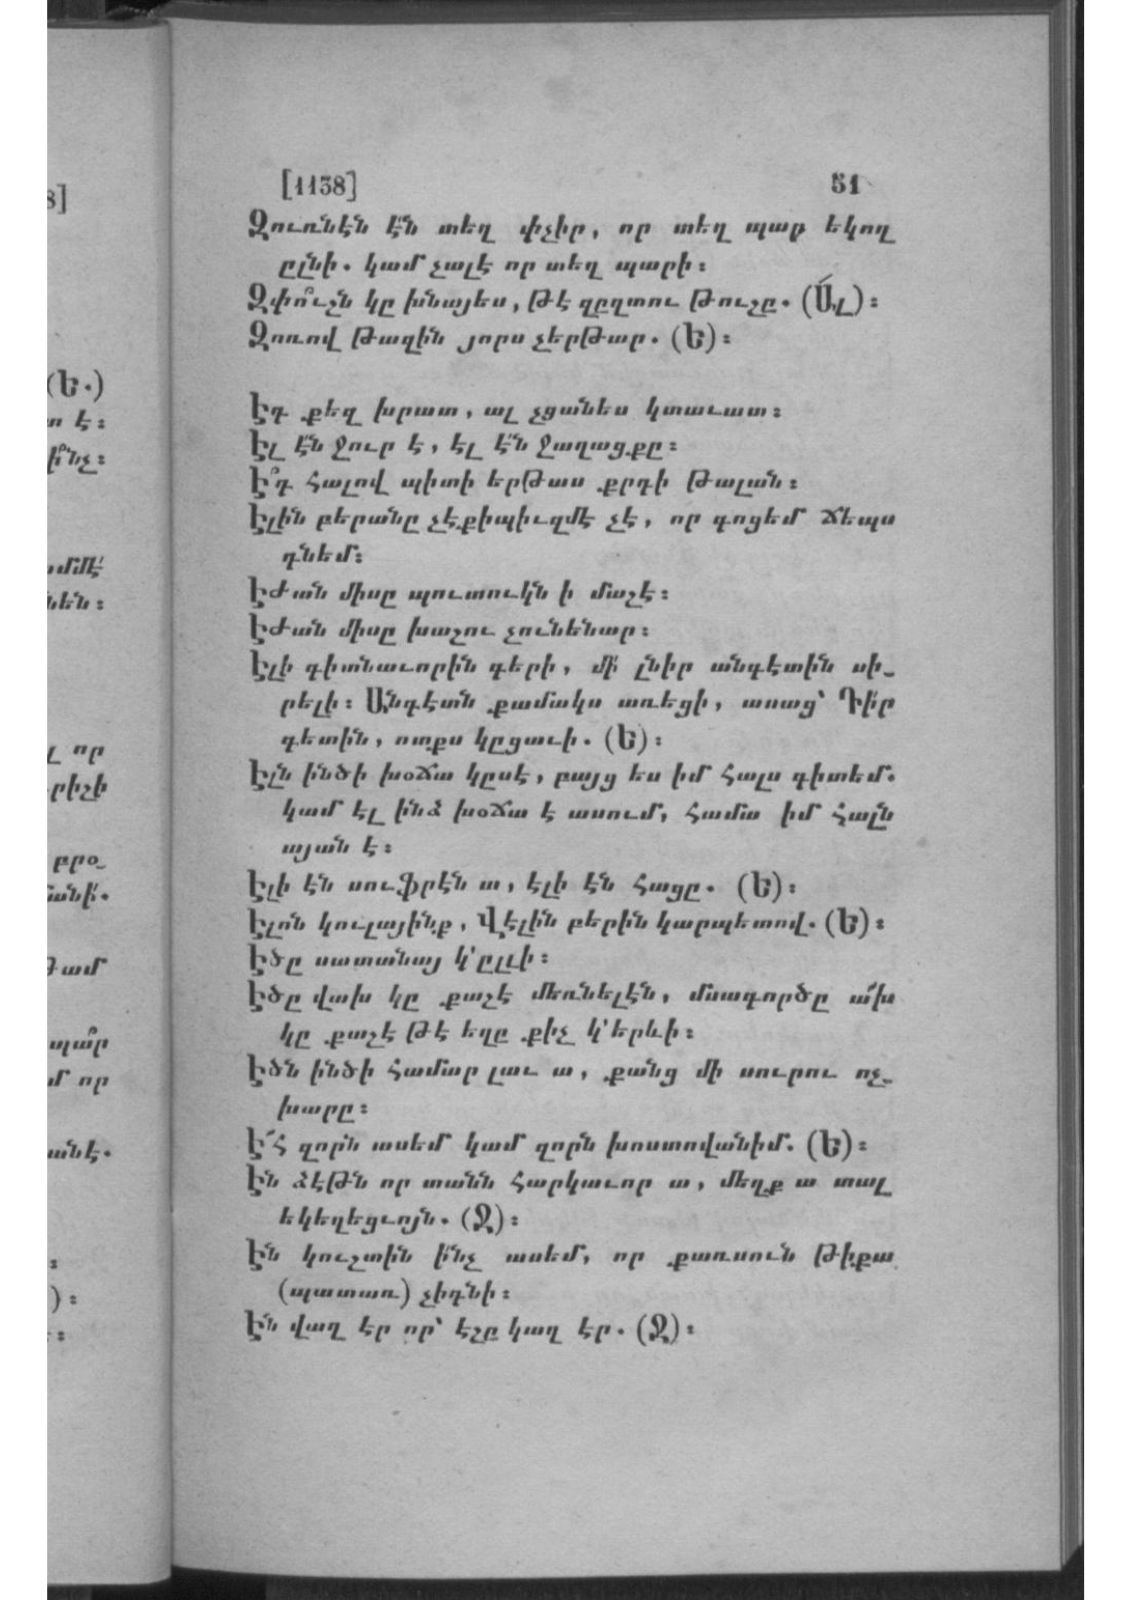 [1138] 51
Զուռնէն է՛ն տեղ փչիր, որ տեղ պար եկող
ըլնի. կամ չալէ որ տեղ պարի։
Զփո՞ւչն կը խնայես, թէ զըղտու թուչը. (Մլ)։
Զոռով թազին յորս չերթար. (Ե)։
Էգ քեզ խրատ, ալ չցանես կտաւատ։
Էլ է՛ն ջուր է, էլ է՛ն ջաղացքը։
Է՞դ հալով պիտի երթաս քրդի թալան։
Էլին բերանը չէքիպիւզմէ չէ, որ գոցեմ ճեպս
դնեմ։
Էժան միսը պուտուկն ի մաշէ։
Էժան միսը խաշու չունենար։
Էլի գիտնաւորին գերի, մի՛ լնիր անգէտին սի-
րելի։ Անգէտն քամակս առեցի, ասաց՝ Դի՛ր
գետին, ոտքս կըցաւի. (Ե)։
Էլն ինծի խօճա կըսէ, բայց ես իմ հալս գիտեմ.
կամ էլ ինձ խօճա է ասում, համա իմ հալն
այան է։
Էլի էն սուֆրէն ա, էլի էն հացը. (Ե)։
Էլոն կուլայինք, Վէլին բերին կարպետով. (Ե)։
Էծը սատանայ կ՚ըլւի։
Էծը վախ կը քաշէ մեռնելէն, մսագործը ա՛խ
կը քաշէ թէ եղը քիչ կ՚երևի։
Էծն ինծի համար լաւ ա, քանց մի սուրու ոչ-
խարը։
Է՜հ զորն ասեմ կամ զորն խոստովանիմ. (Ե)։
Էն ձէթն որ տանն հարկաւոր ա, մեղք ա տալ
եկեղեցւոյն. (Ջ)։
Էն կուշտին ի՛նչ ասեմ, որ քառսուն թիքա
(պատառ) չիգնի։
Էն վաղ էր որ՝ էշը կաղ էր. (Ջ)։